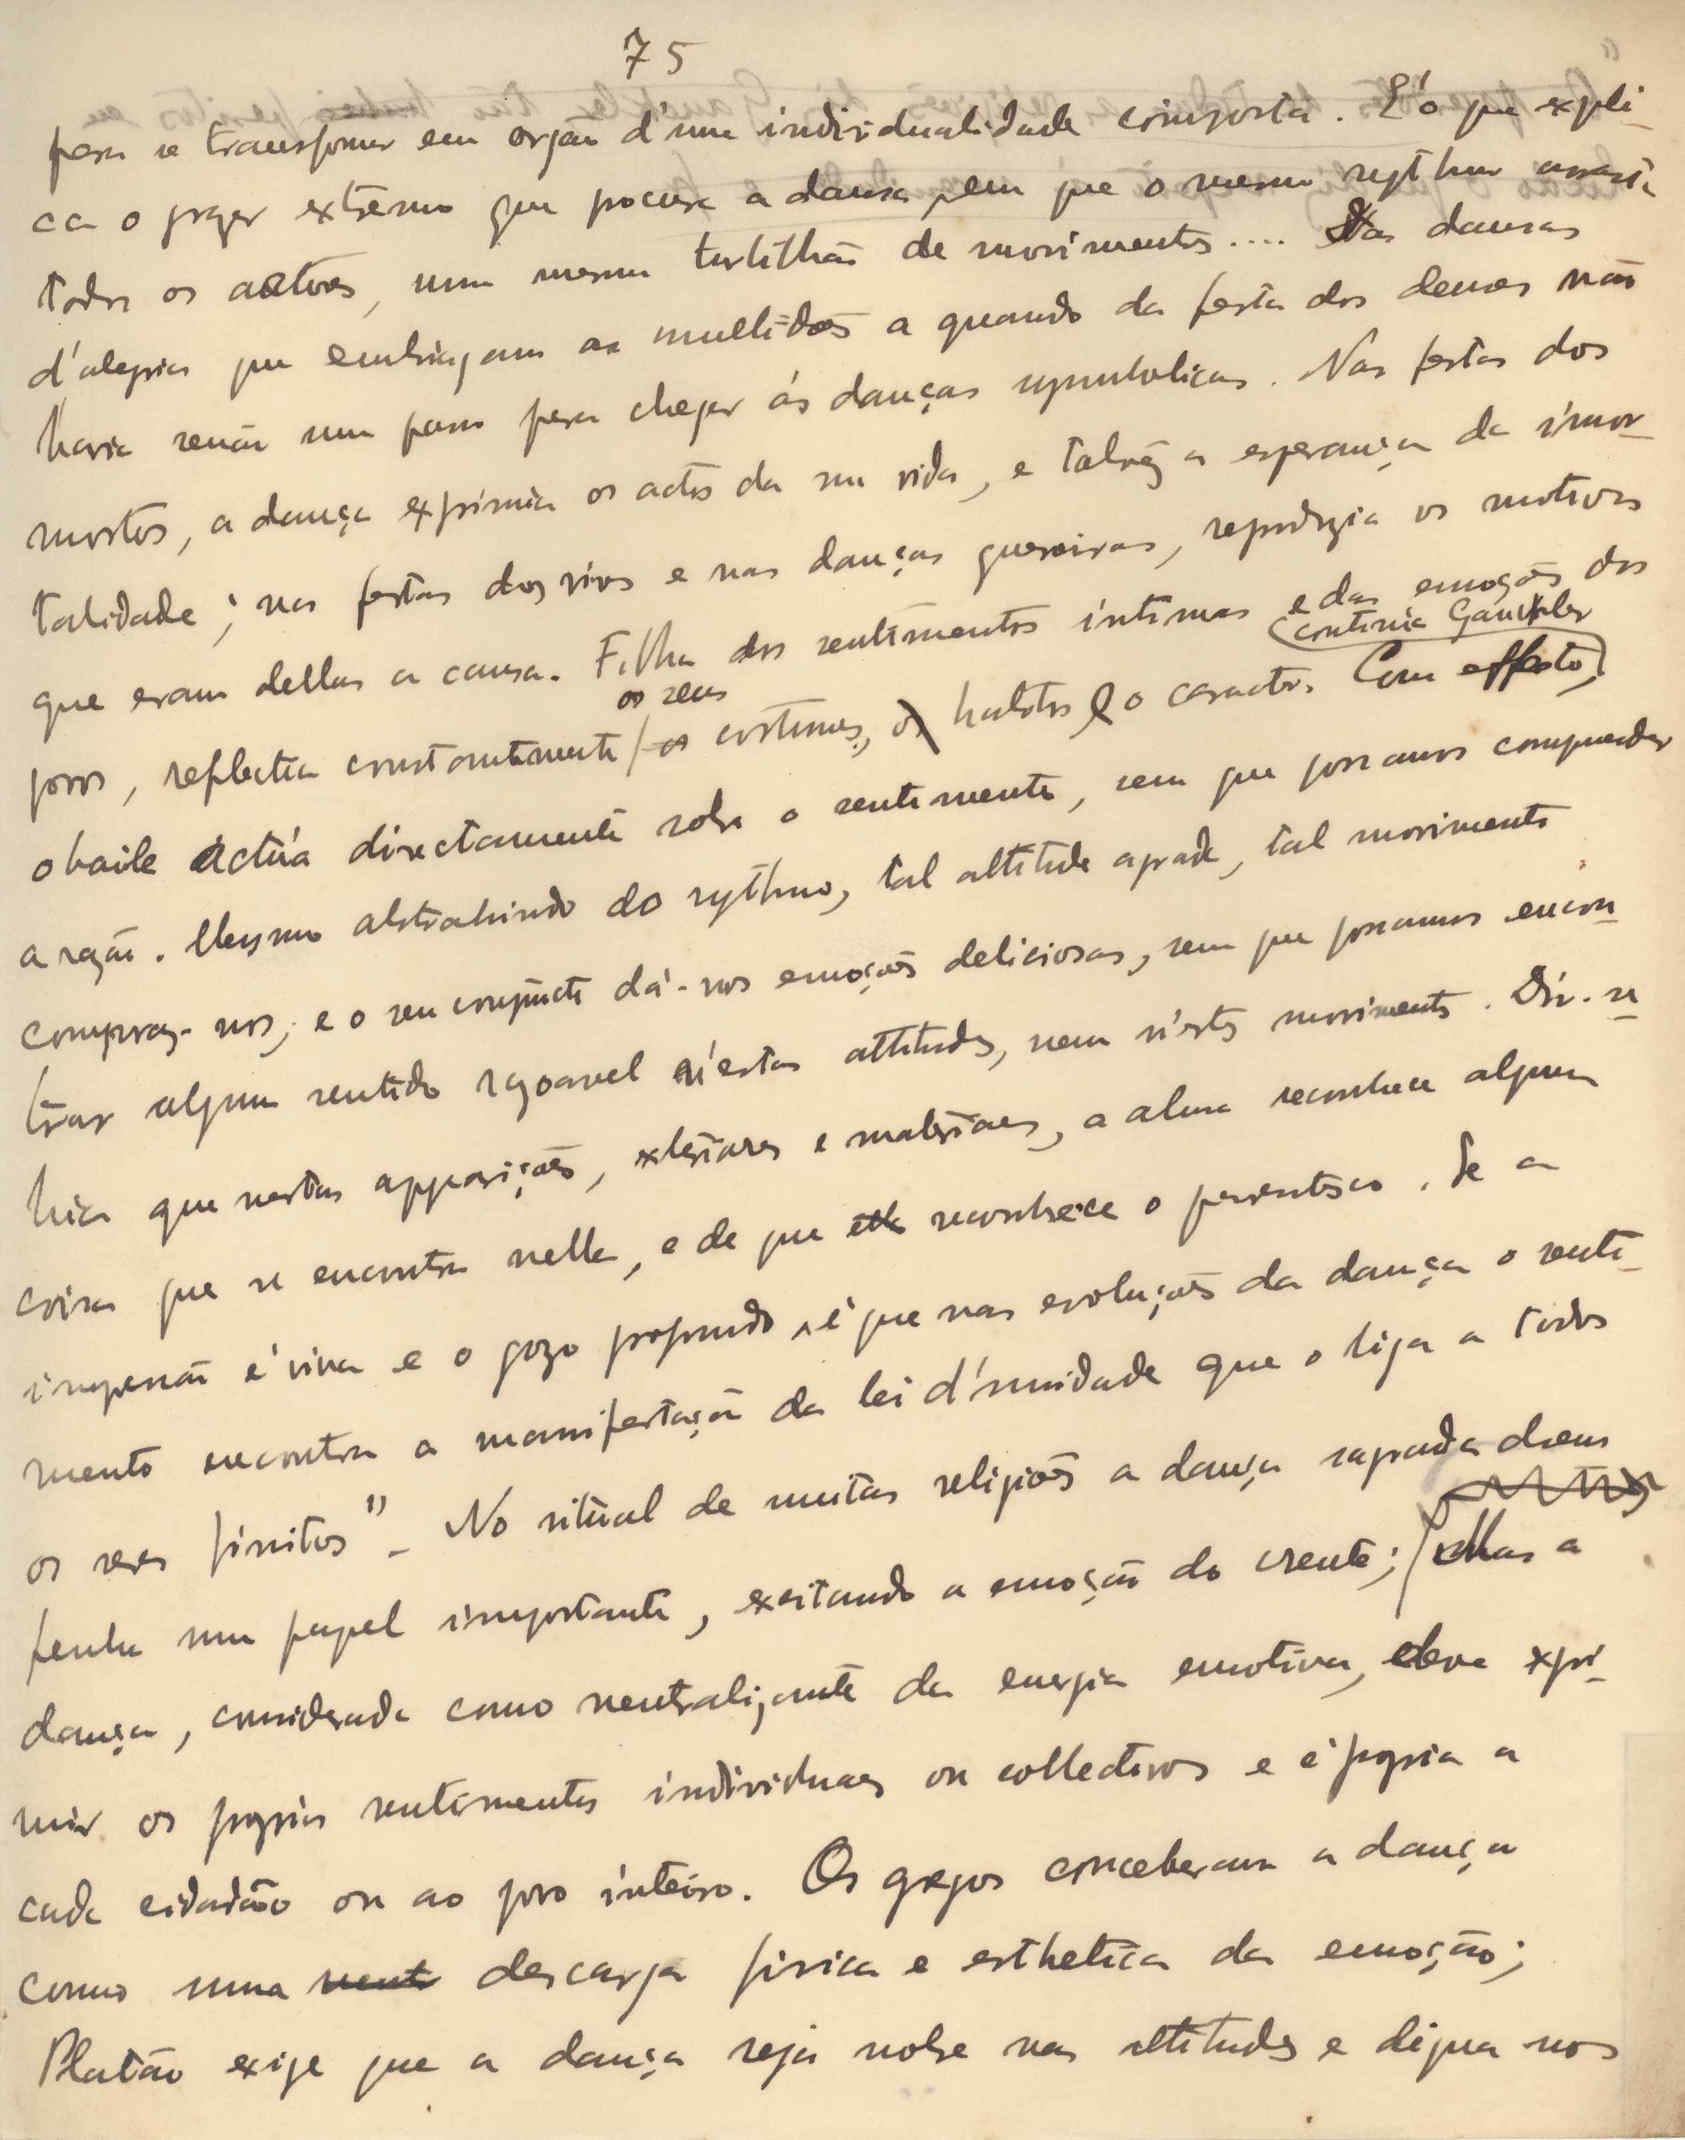 75
para se transformar em orgão d'uma individualidade composta. E' o que expli-
ca o prazer extremo que procura a dansa, em que o mesmo rythmo arrasta
todos os actores, num mesmo turbilhão de movimentos.... Das dansas
d'alegria que embriagam as multidões a quando da festa dos deuses não
havia senão um passo para chegar ás danças symbolicas. Nas festas dos
mortos, a dança exprimia os actos da sua vida, e talvez a esperança da immor-
talidade; nas festas dos vivos e nas danças guerreiras, reproduzia os motivos
que eram dellas a causa. Filha dos sentimentos intimos e das emoções dos
(continua Gauckler
os seus
povos, reflectia constantemente os costumes, os habitos e o caracter. Com effeito,)
o baile actúa directamente sobre o sentimento, sem que possamos comprender
a razão. Mesmo abstrahindo do rythmo, tal attitude agrada, tal movimento
compraz-nos, e o seu conjuncto dá-nos emoções deliciosas, sem que possamos encon-
trar algum sentido razoavel n'estas attitudes, nem n'estes movimentos. Dir-se
hia que nestas apparições, exteriores e materiaes, a alma reconhece alguma
coisa que se encontra nella, e de que ella reconhece o parentesco. Se a
impressão é viva e o gozo profundo, é que nas evoluções da dança o senti-
mento encontra a manifestação da lei d'unidade que o liga a todos
os seres finitos" - No ritual de muitas religiões a dança sagrada desem
penha um papel importante, excitando a emoção do crente; Mas a
dança, considerada como neutralizante da energia emotiva, deve expri-
mir os proprios sentimentos individuaes ou collectivos e é propria a
cada cidadão ou ao povo inteiro. Os gregos conceberam a dança
como uma descarga fisica e esthetica da emoção;
Platão exige que a dança seja nobre nas attitudes e digna nos